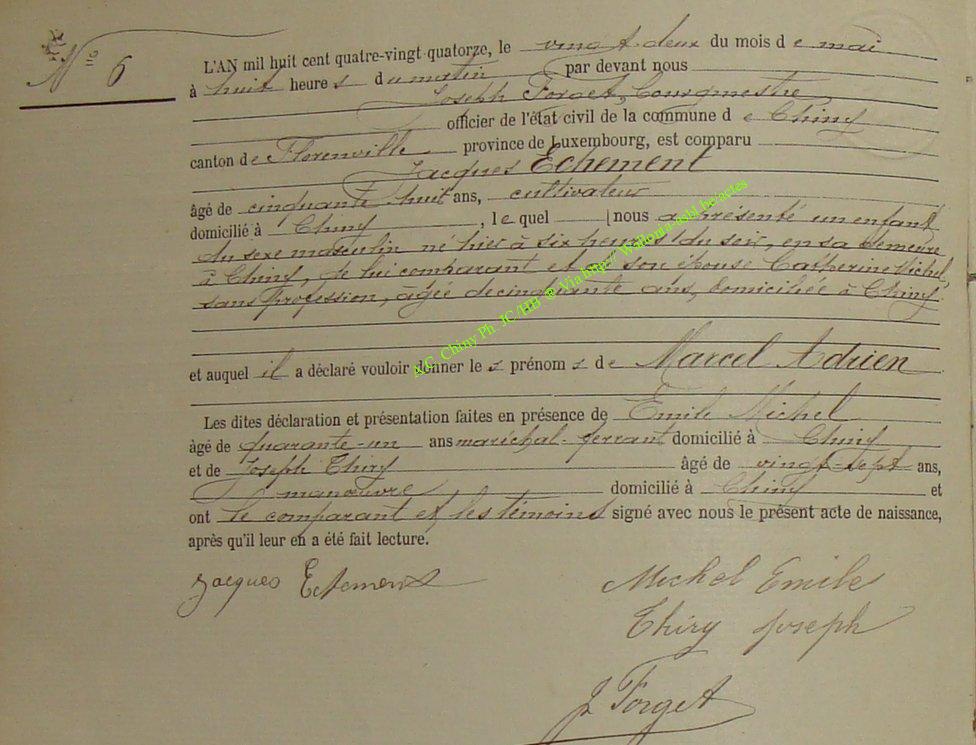 Nº 6
L'AN mil huit cent quatre-vingt-quatorze, le vingt-deux du mois de mai
à huit heures du matin par devant nous
Joseph Forget, Bourgmestre,
officier de l'état civil de la commune de Chiny
canton de Florenville province de Luxembourg, est comparu
Jacques Echement
âgé de cinquante huit ans, cultivateur
domicilié à Chiny, lequel nous a présenté un enfant
du sexe masculin né hier à six heures du soir, en sa demeure
à Chiny, de lui comparant et de son épouse Catherine Michel,
sans profession, âgée de cinquante ans, domiciliée à Chiny
et auquel il a déclaré vouloir donner les prénoms de Marcel Adrien
Les dites déclaration et présentation faites en présence de Emile Michel
âgé de quarante-un ans maréchal-ferrant domicilié à Chiny
et de Joseph Thiry âgé de vingt-sept ans,
manœuvre domicilié à Chiny et
ont le comparant et les témoins signé avec nous le présent acte de naissance,
après qu'il leur en a été fait lecture.
Jacques Echement
Michel Emile
Thiry Joseph
J Forget
A.C. Chiny Ph. JC/HB ® Via http://Wallonia-asbl.be/actes